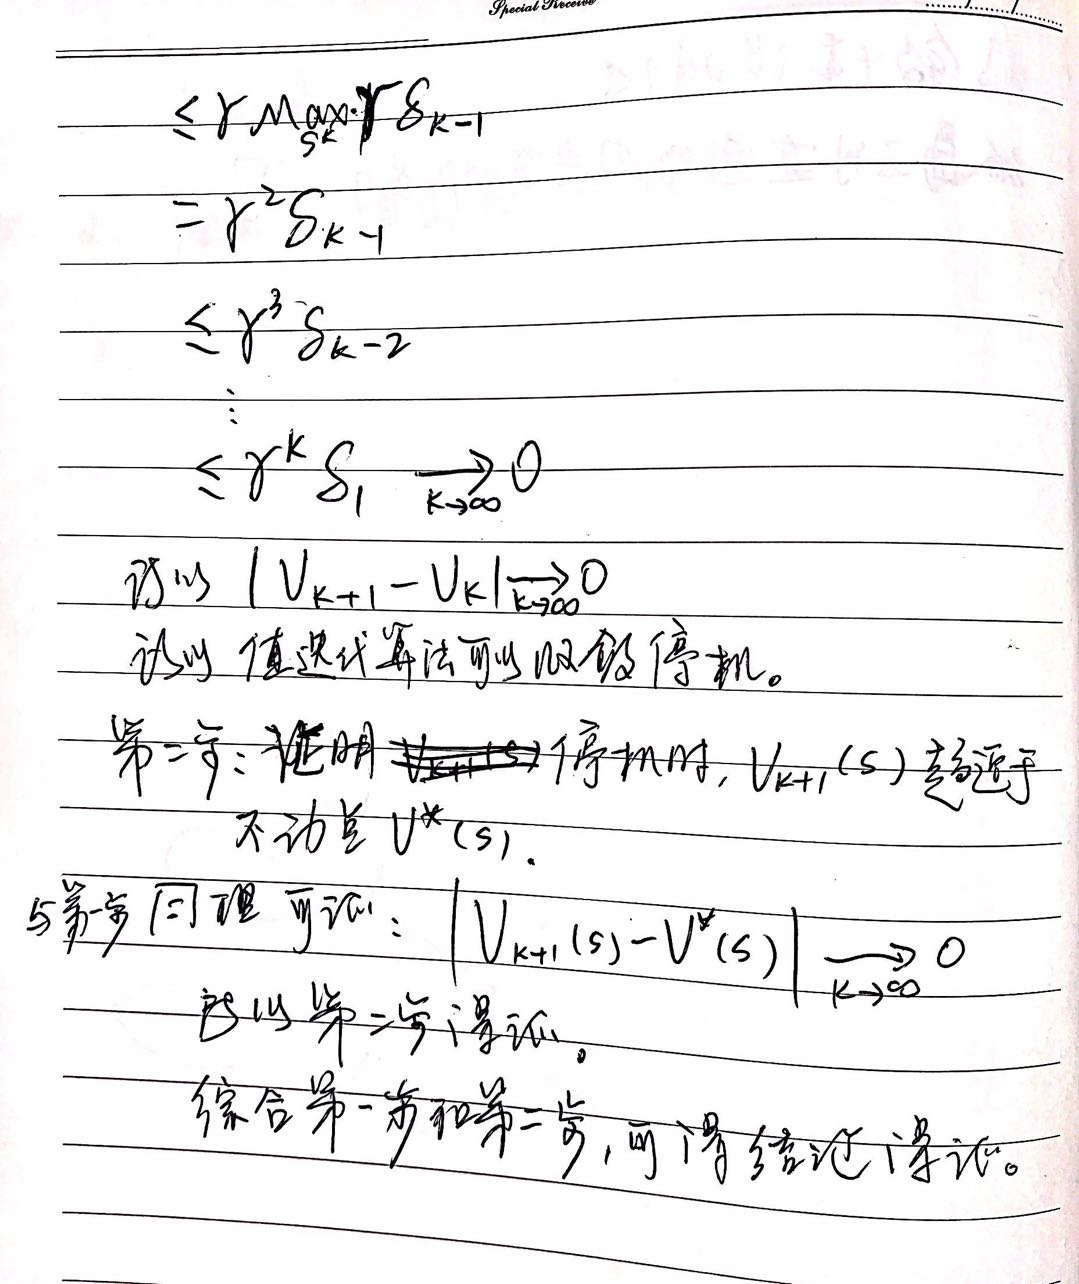 Special Receive
≤ γ Max_{S^k} · γ δ_{k-1}
= γ² δ_{k-1}
≤ γ³ δ_{k-2}
⋮
≤ γ^k δ_1 →_{k→∞} 0
所以 |V_{k+1} - V_k| →_{k→∞} 0
所以 值迭代算法可以收敛停机。
第二步:证明 停机时, V_{k+1}(s) 趋近于
不动点 V*(s).
与第一步同理可证: |V_{k+1}(s) - V*(s)| →_{k→∞} 0
所以第二步得证。
综合第一步和第二步,可得结论得证。